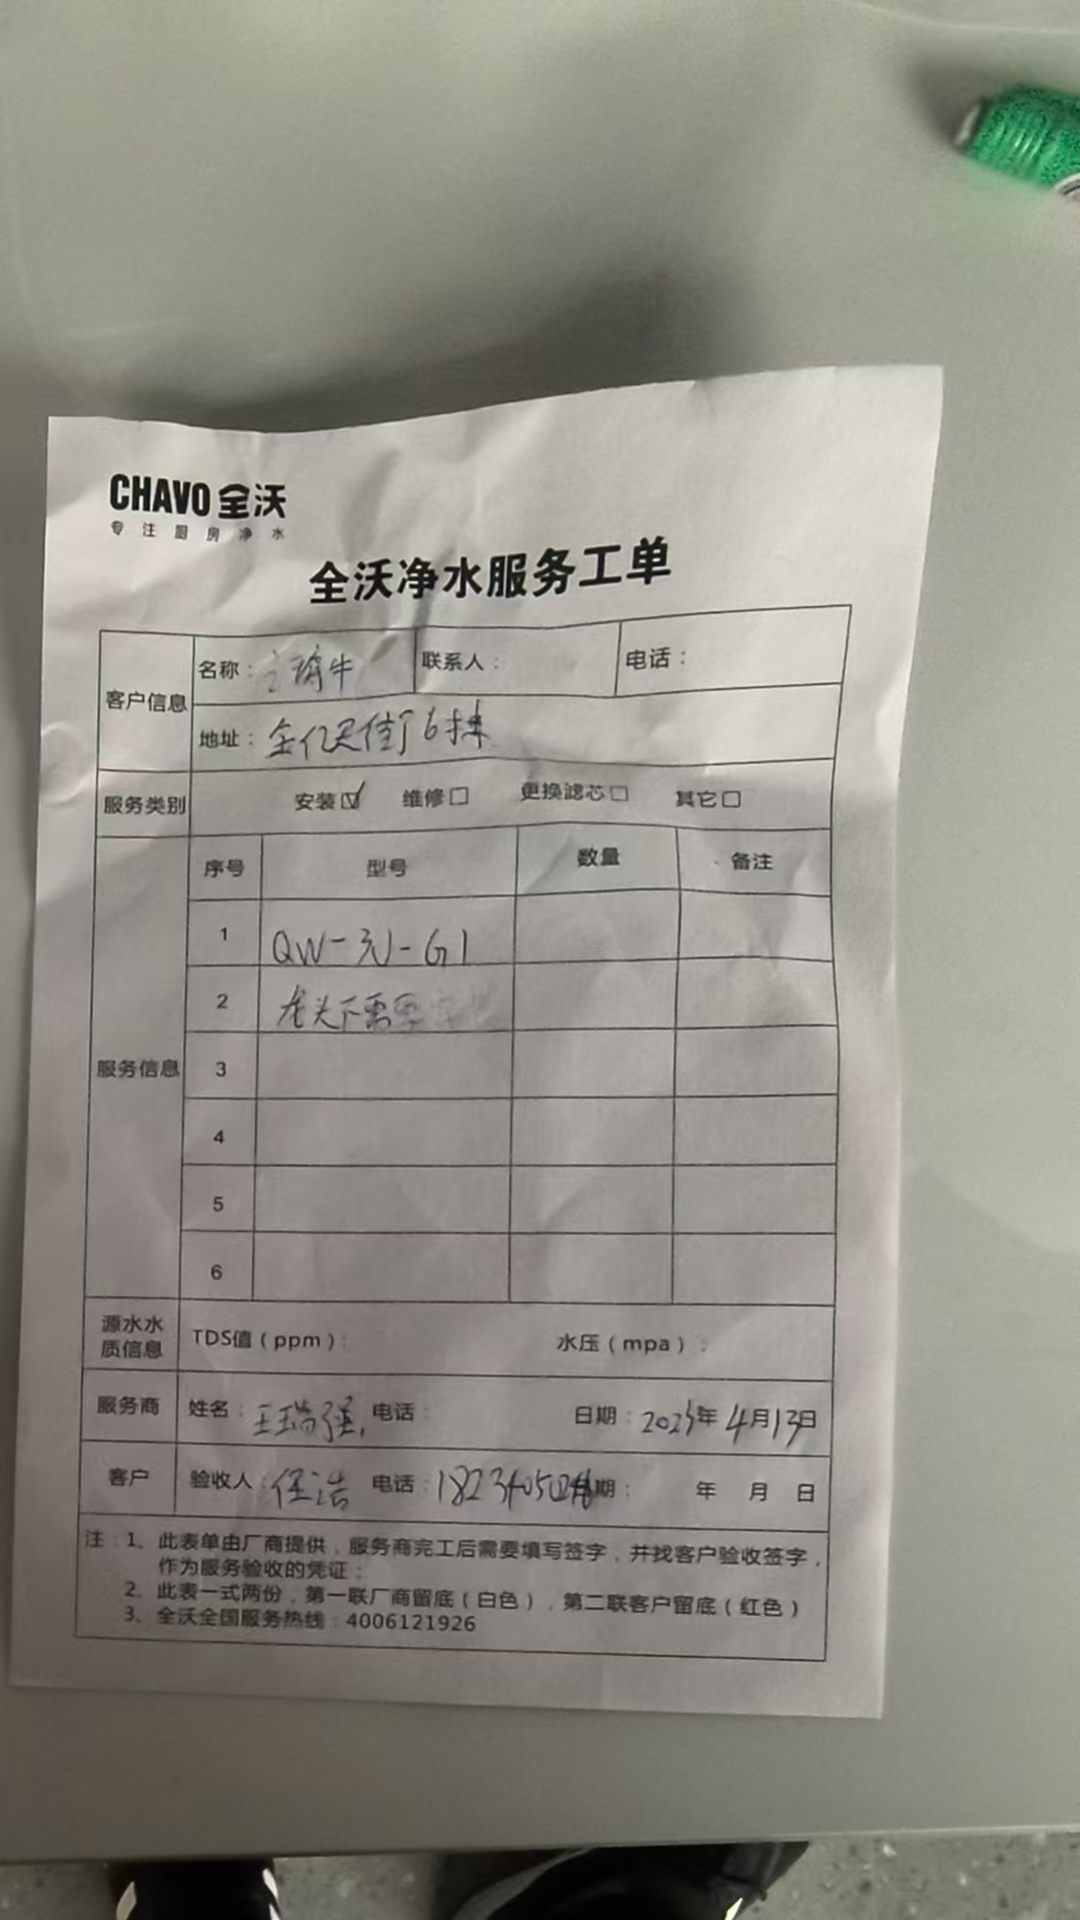 CHAVO 全沃
专注厨房净水
全沃净水服务工单
客户信息 名称： 联系人： 电话：
地址： 6栋
服务类别 安装☑ 维修□ 更换滤芯□ 其它□
服务信息 序号 型号 数量 备注
1 QW-3U-G1
2 龙头下需
3
4
5
6
源水水质信息 TDS值（ppm）： 水压（mpa）：
服务商 姓名：王瑞强 电话： 日期：2025年4月13日
客户 验收人：任浩 电话： 日期： 年 月 日
注：1、此表单由厂商提供，服务商完工后需要填写签字，并找客户验收签字，
作为服务验收的凭证；
2、此表一式两份，第一联厂商留底（白色），第二联客户留底（红色）
3、全沃全国服务热线：4006121926